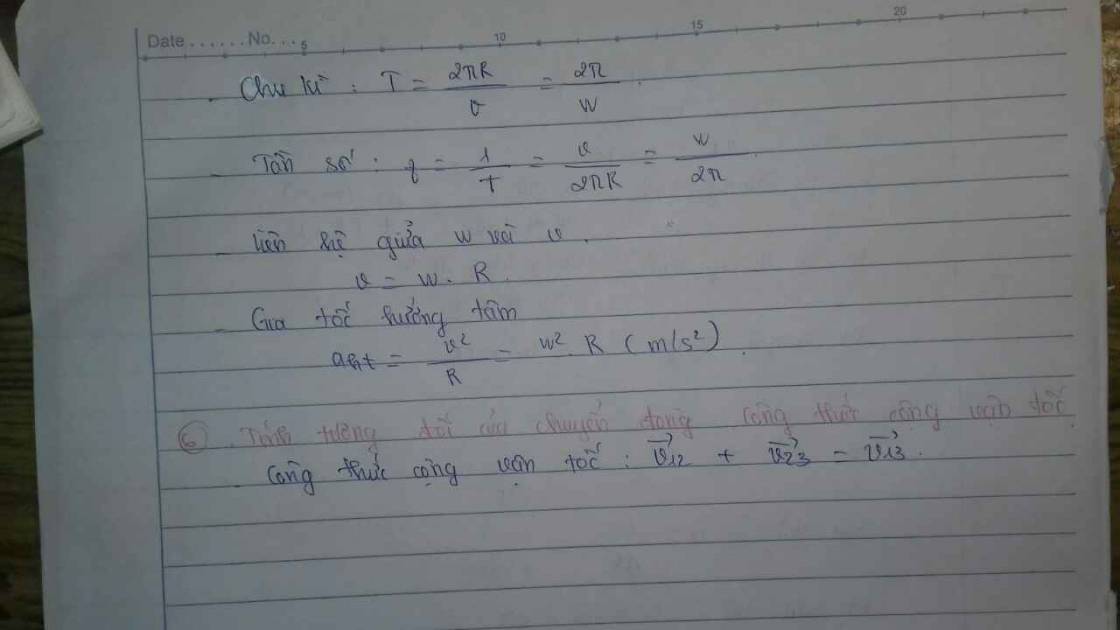 Date ...... No. ... 5 10 15 20
- Chu kì : T = 2πR / v = 2π / w .
- Tần số : f = 1 / T = v / 2πR = w / 2π
- Liên hệ giữa w với v .
v = w . R .
- Gia tốc hướng tâm
aht = v² / R = w² . R ( m/s² ) .
⑥ . Tính tương đối của chuyển động công thức cộng vận tốc
Công thức cộng vận tốc : v⃗12 + v⃗23 = v⃗13 .